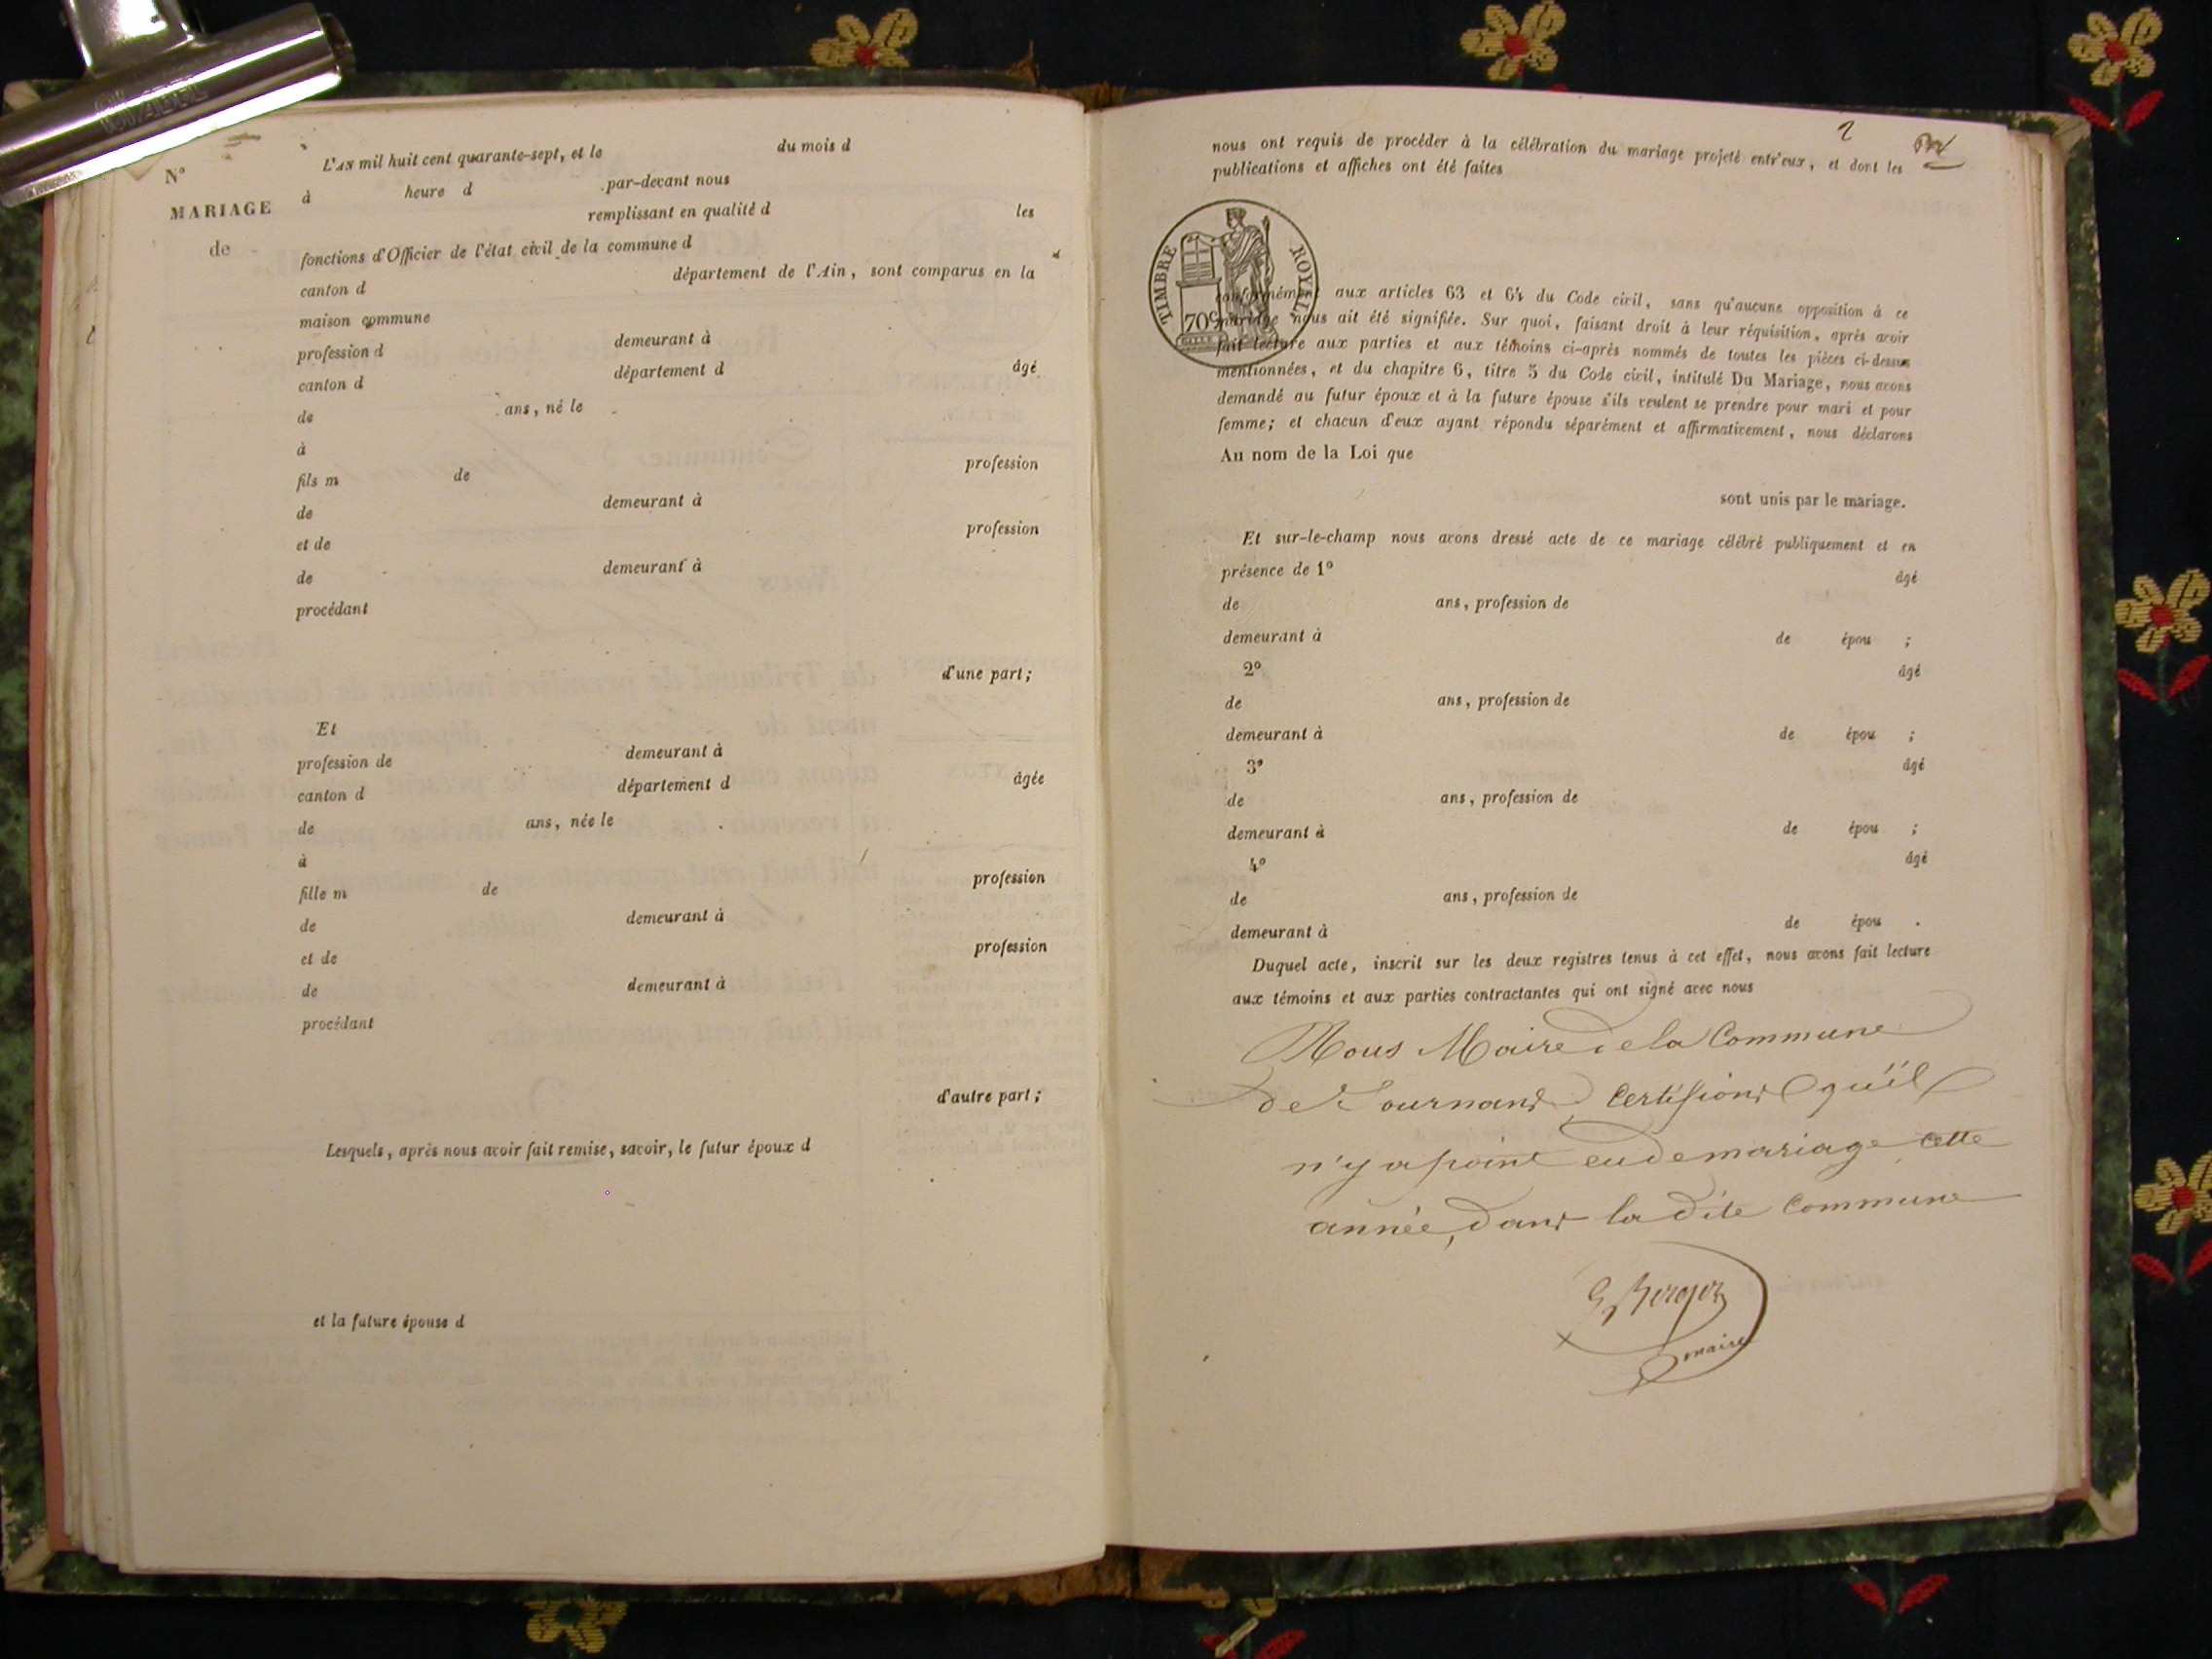 N°
MARIAGE
de
L'AN mil huit cent quarante-sept, et le du mois d
à heure d par-devant nous
remplissant en qualité d les
fonctions d'Officier de l'état civil de la commune d
canton d département de l'Ain, sont comparus en la
maison commune
profession d demeurant à
canton d département d âgé
de ans, né le
à
fils m de profession
de demeurant à
et de profession
de demeurant à
procédant
d'une part;
Et
profession de demeurant à
canton d département d âgée
de ans, née le
à
fille m de profession
de demeurant à
et de profession
de demeurant à
procédant
d'autre part;
Lesquels, après nous avoir fait remise, savoir, le futur époux d
et la future épouse d
2
nous ont requis de procéder à la célébration du mariage projeté entr'eux, et dont les
publications et affiches ont été faites
TIMBRE ROYAL
70c
conformément aux articles 63 et 64 du Code civil, sans qu'aucune opposition à ce
mariage nous ait été signifiée. Sur quoi, faisant droit à leur réquisition, après avoir
fait lecture aux parties et aux témoins ci-après nommés de toutes les pièces ci-dessus
mentionnées, et du chapitre 6, titre 5 du Code civil, intitulé Du Mariage, nous avons
demandé au futur époux et à la future épouse s'ils veulent se prendre pour mari et pour
femme; et chacun d'eux ayant répondu séparément et affirmativement, nous déclarons
Au nom de la Loi que
sont unis par le mariage.
Et sur-le-champ nous avons dressé acte de ce mariage célébré publiquement et en
présence de 1° âgé
de ans, profession de
demeurant à de épou ;
2° âgé
de ans, profession de
demeurant à de épou ;
3° âgé
de ans, profession de
demeurant à de épou ;
4° âgé
de ans, profession de
demeurant à de épou .
Duquel acte, inscrit sur les deux registres tenus à cet effet, nous avons fait lecture
aux témoins et aux parties contractantes qui ont signé avec nous
Nous Maire de la Commune
de Journans Certifions qu'il
n'y a point eu de mariage cette
année, dans la dite Commune
Berger
maire